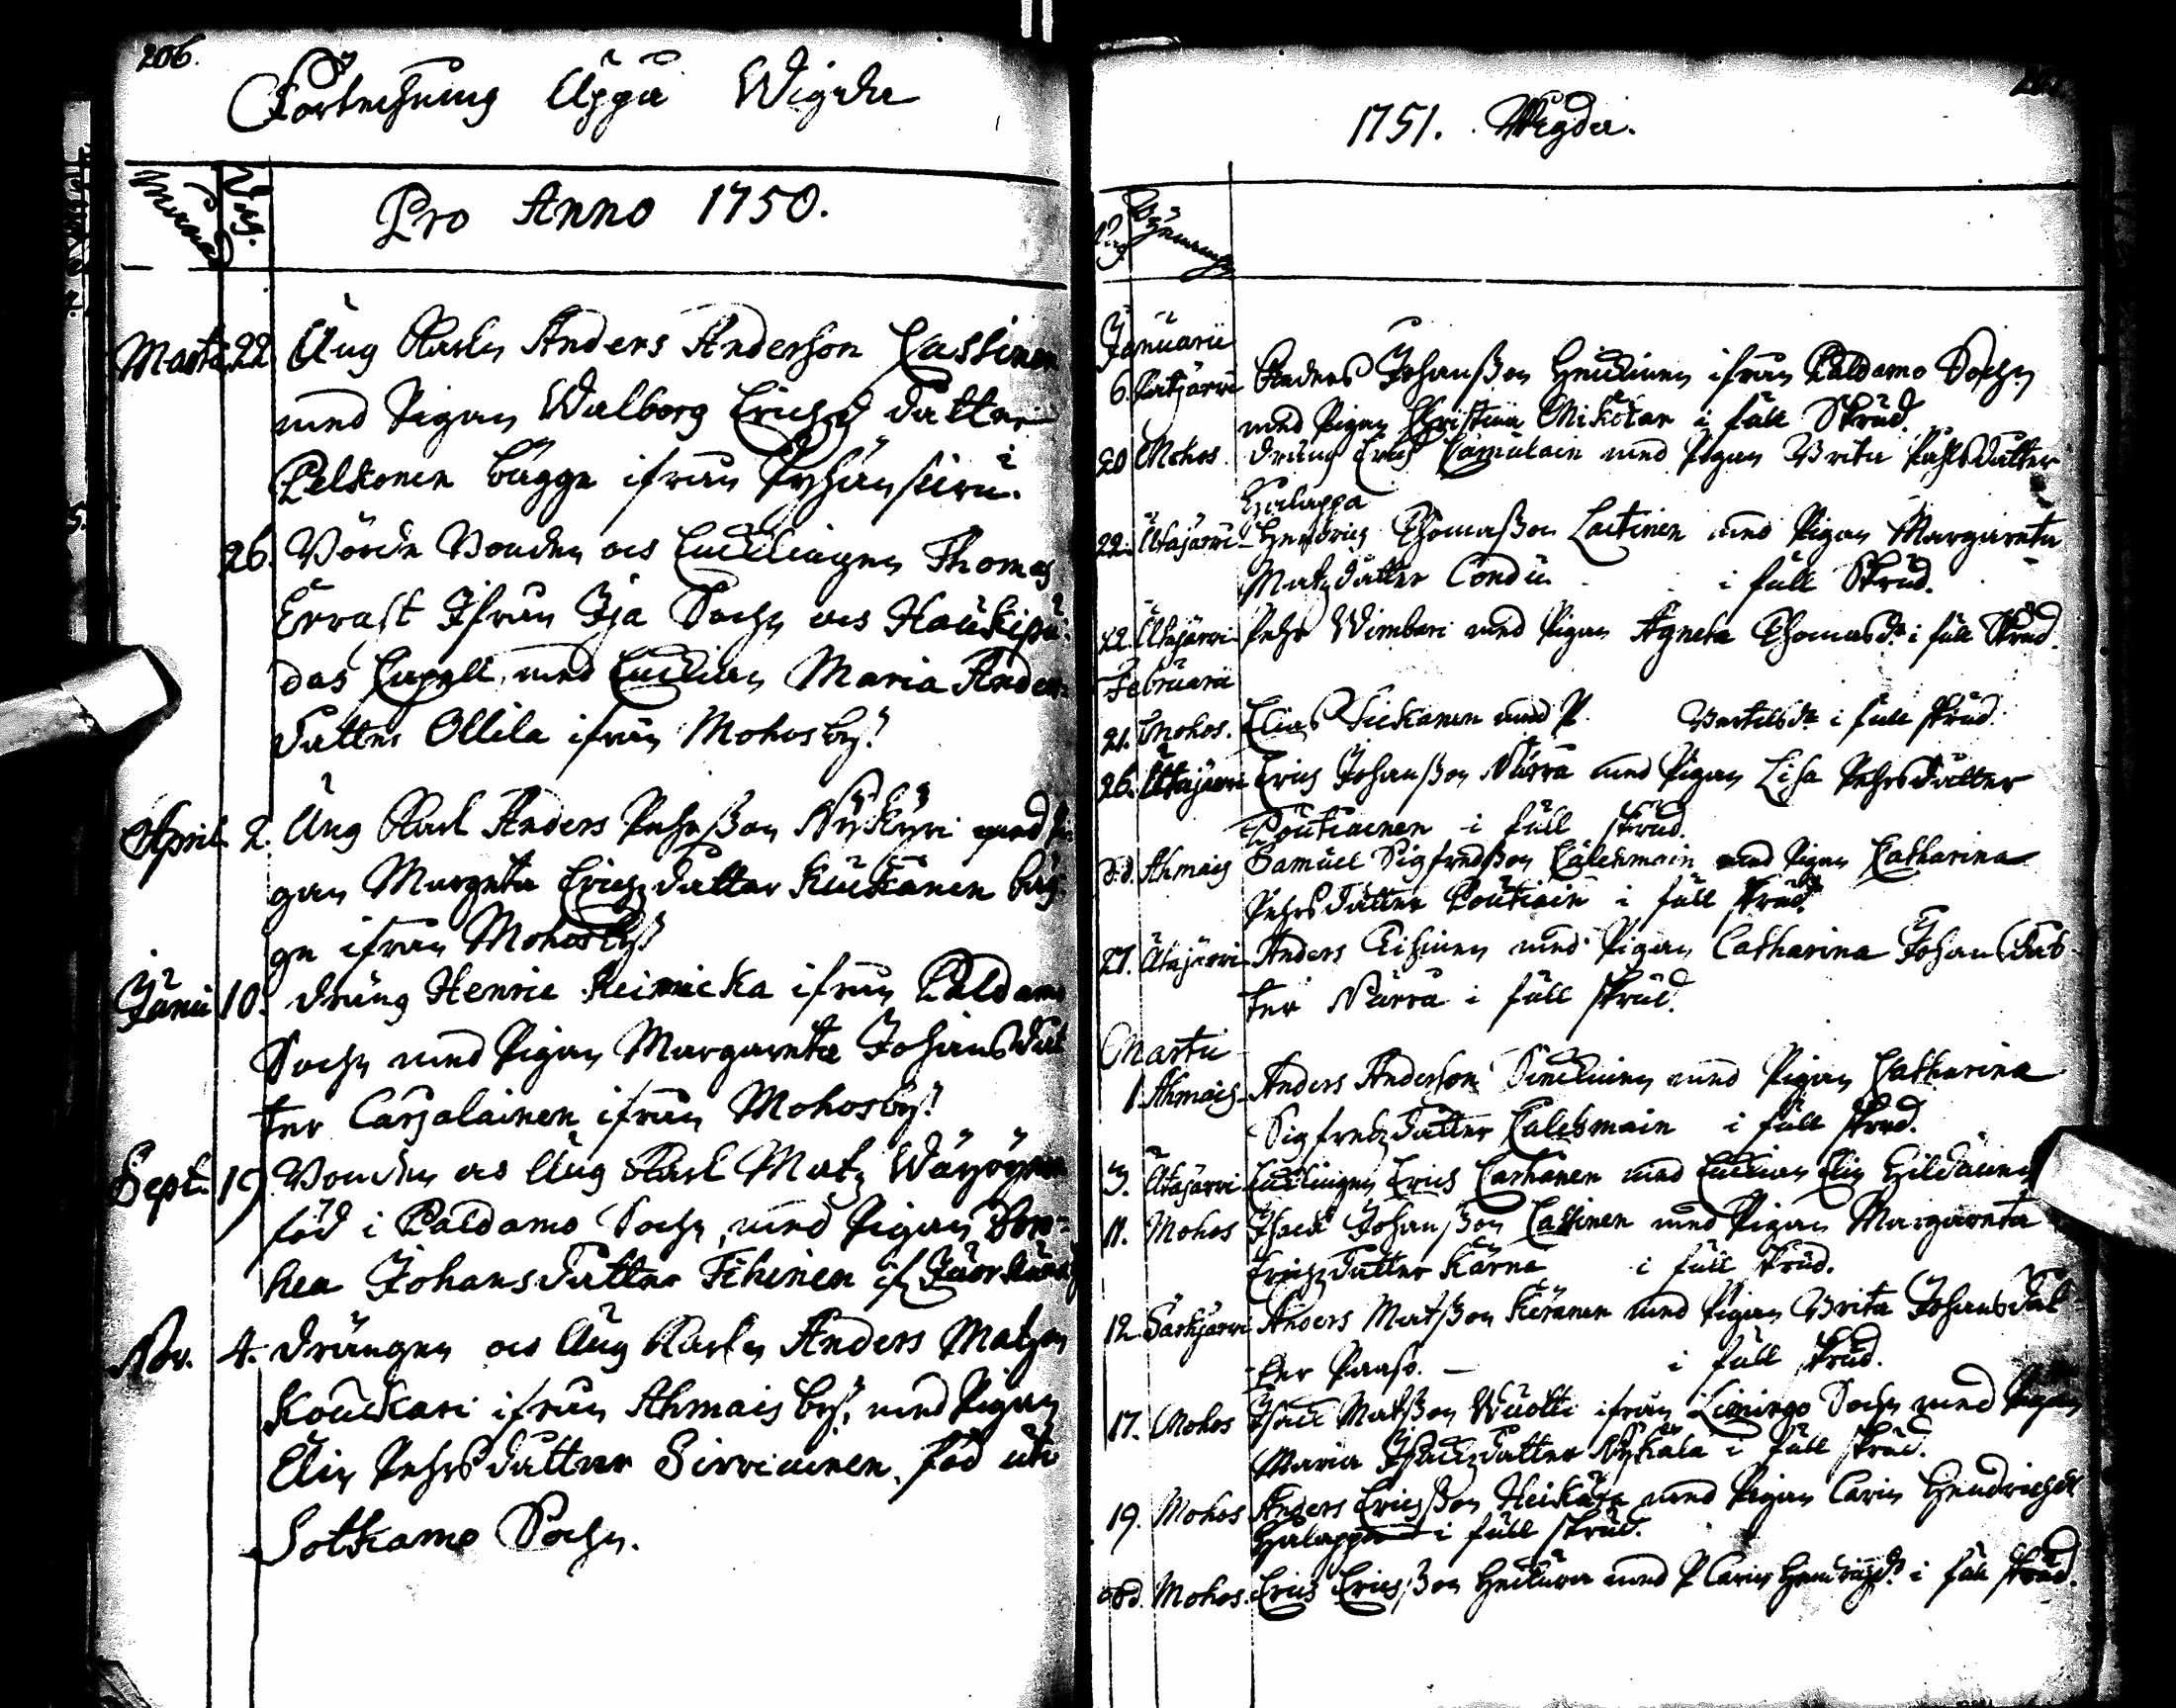 206.
Förtechning Uppå Wigde
Månad Dag.
Pro Anno 1750.
Martii 22. Ung Karlen Anders Anderson Cassinen
med Pigan Walborg Erichs dotter
Pelkonen bägge ifrån Pyhänsivu.
26. Bonden och Encklingen Thomas
Errast Ifrån Ija Sochn och Haukipu-
das Capell, med Enckian Maria Anders
dotter Ollila ifrån Mohosby.
April 2. Ung Karl Anders Pehrßon Nykyri med Pi-
gan Margreta Erichzdotter Kuckanen bäg-
ge ifrån Mohosby
Junii 10. dräng Henric Keinicka ifrån Paldamo
Sochn med Pigan Margareta Johansdot
ter Carjalainen ifrån Mohosby.
Sept. 19. Bonden och Ung Karl Matz Wäyrynen
född i Paldamo Sochn, med Pigan Doro-
hea Johansdotter Tihinen if
Nov. 4. drängen och Ung Karlen Anders Matzon
Kouckari ifrån Ahmais by, med Pigan
Elin Pehrsdotter Sirviainen, född uti
Sotkamo Sochn.
1751. Wigde.
Dag Byenampn
Januarii
6. Anders Johanßon Heickinen ifrån Paldamo Sochn
med Pigan Christina Mikotar i full Skrud.
20 Mohos. dräng Erich Camulain med Pigan Brita Påhlsdotter
Halappa
22. Utajärvi Hendrich Thomaßon Laitinen med Pigan Margareta
Matzdotter Condu i full Skrud.
22. Utajärvi Pehr Wimbari med Pigan Agneta Thomasdr i full Skrud.
Februarii
21. Mohos. Elias Kickanen med P. Bertilsdr i full skrud.
26. Utajärvi Erich Johanßon Nurra med Pigan Lisa Pehrsdotter
Poutiainen i full skrud.
d.d. Ahmais Samuel Sigfredßon Calehmain med Pigan Catharina
Pehrsdotter Poutiain i full skrud.
27. Utajärvi Anders Tihinen med Pigan Catharina Johansdot
ter Nurra i full skrud.
Martii
1. Ahmais Anders Anderson med Pigan Catharina
Sigfredzdotter Calehmain i full skrud.
3. Utajärvi Encklingen Erich Carhanen med Enckian Elin
11. Mohos Isack Johanßon Cassinen med Pigan Margareta
Erichzdotter Kärnä i full skrud.
12 Särkijärvi Anders Matßon Keränen med Pigan Brita Johansdot
ter Paaso. i full skrud.
17. Mohos Isack Matßon Wuotti ifrån Limingo Sochn med Pigan
Maria Isackzdotter Nykala i full skrud.
19. Mohos Anders Erichßon Heikura med Pigan Carin Hendrichsdr
Halappa i full skrud.
d.d. Mohos. Erich Erichßon Heikura med P Carin Hendrichsdr i full skrud.